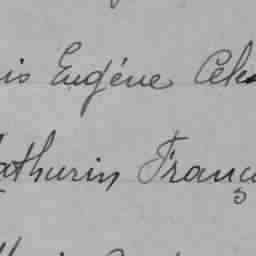 is Eugène Alex
athurin Franç